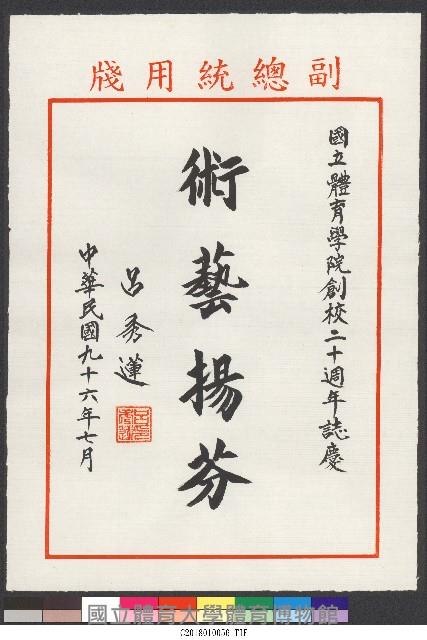 副總統用牋
國立體育學院創校二十週年誌慶
術藝揚芬
呂秀蓮
中華民國九十六年七月
國立體育大學體育博物館
C2018010056.TIF